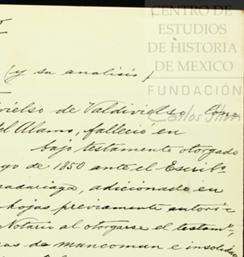 CENTRO DE
ESTUDIOS
DE HISTORIA
DE MEXICO
FUNDACIÓN
Carlos Slim
(y su analisis)
de Valdivielso,
del Alamo, falleció en
bajo testamento otorgado
de 1850 ante el Escrib
adicionado en
hojas previamente
Notario al otorgarse el testam
de mancomun e insolidum